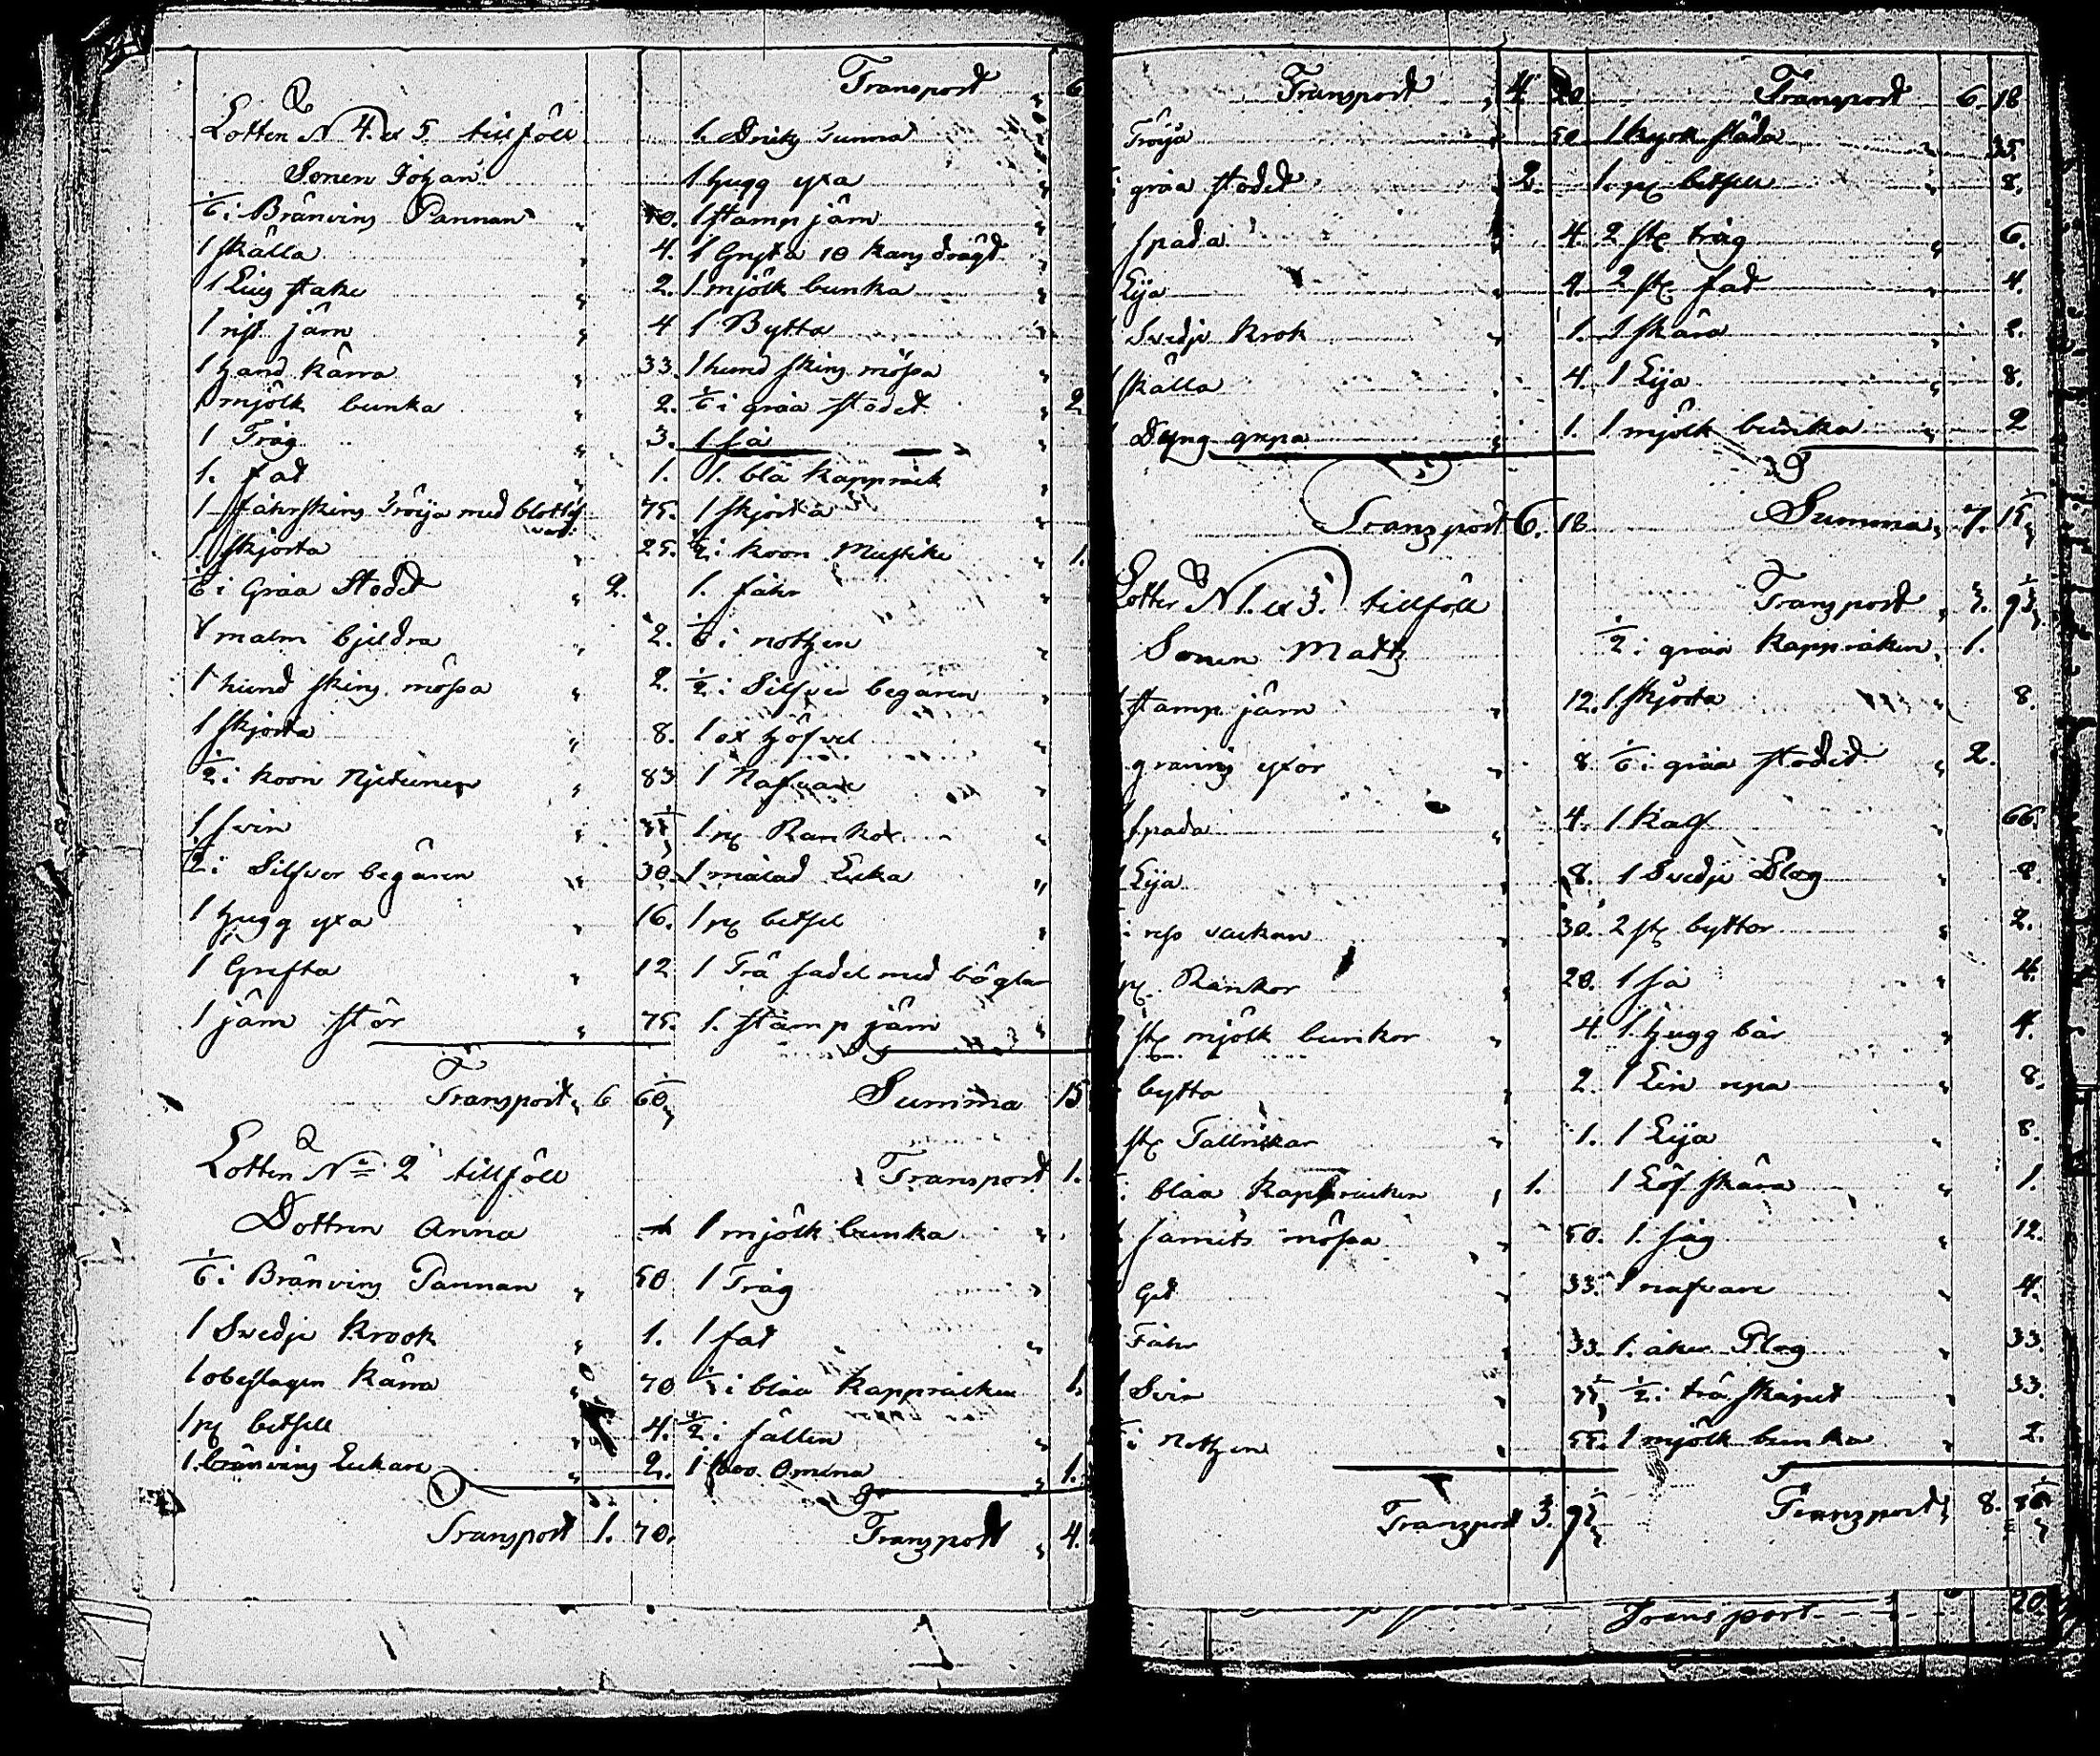 Lotten N 4. et 5. tillföll
Sonen Johan
1/6 i Bränvins Pannan " 50.
1 skälla " 4.
1 Lius stake " 2.
1 rist järn " 4
1 hand kärra " 33.
1 mjölk bunka " 2.
1 Tråg " 3.
1. fat 1.
1 fåhrskins Tröija med 75.
1 skjorta " 25.
1/6 i Gråa Stodet " 2.
1 malm bjeldra " 2.
1 hund skins mössa " 2.
1 skjorta " 8.
1/2 i koon " 83
1 svin "
1/2 i Silfver begaren " 30.
1 hugg yxa " 16.
1 Grefta " 12
1 järn stör " 75.
Transport " 6 60
Lotten No 2 tillföll
Dottren Anna
1/6 i Bränvins Pannan " 50
1 Svedje Krook " 1.
1 obeslagen kärra " 70
1 pr betsell " 4.
1. bränvins Lekare " 2.
Transport 1. 70.
Transport " 6
1. Dricks Tunna "
1 hugg yxa "
1 stamp järn "
1 Gryta 10 kans drägt "
1 mjölk bunka "
1 Bytta "
1 hund skins mössa "
1/6 i gråa stodet 2
1 så
1. blå kapprock "
1 skjorta "
1/2 i koon Mustike " 1.
1. fåhr "
1/6 i nothen "
1/2 i Silfver begaren "
1 ox höfvel "
1 Nafvare "
1 pr Rankor "
1 målad Leka "
1 pr betsel "
1 Trä sadel med böglar
1. stamp järn "
Summa 15
Transport 1.
1 mjölk bunka "
1 Tråg "
1 fat "
i blåa Kappråcken 1.
1/2 i fällen "
1 koo Omena " 1.
Transport " 4.
Transport " 4 20
Tröija " 50
i gråa stodet 2.
spada " 4.
Lija " 4.
Svedje krok " 1.
skälla " 4.
Dyng grepa " 1.
Transport 6. 18
Lotter N 1. et 3. tillföll
Sonen Matts
stamp järn " 12.
gravins yxor " 8
spada " 4.
Lija " 8.
i " 30.
pr Rankor " 20.
st mjölk bunkor " 4.
bytta " 2.
st Tallrickar " 1.
i blåa Kappråcken " 1.
samets mössa " 50.
Get " 33.
Fåhr " 33.
Svin "
i Nothen " 55.
Transport 3.
Transport 6. 18
1 kyrk släda " 35
1 pr betsell " 8.
2 st tråg " 6.
2 st fat " 4.
1 skära " 2.
1 Lija " 8.
1 mjölk bunka " 2
Summa " 7.
Transport " 3.
1/2 i gråa Kappråken " 1.
1 skjorta " 8.
1/6 i gråa stodet " 2.
1 Kalf " 66.
1 Svedje Plog " 8.
2 st byttor " 2.
1 så " 4.
1. hugg bår " 4.
1 Lin repa " 8.
1 Lija " 8.
1 Löf skära " 1.
1. såg " 12.
1 nafvare " 4.
1. åker Plog " 33.
1/2 i trä skåpet " 33.
1 mjölk bunka " 2.
Transport " 8.
Transport 20